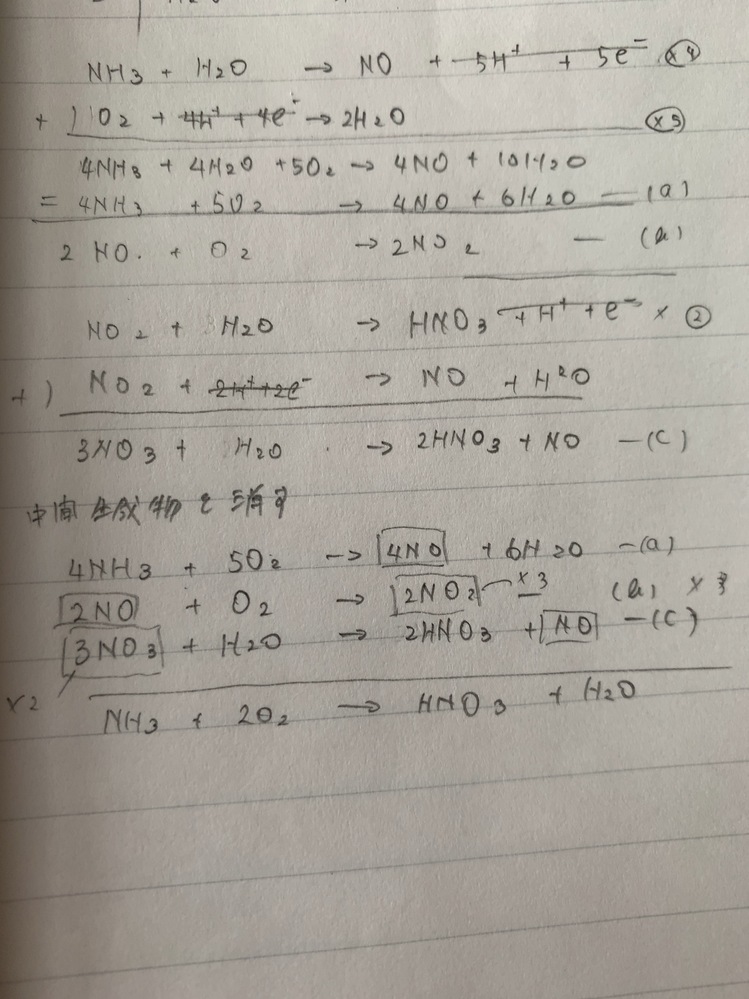 NH₃ + H₂O → NO + 5H⁺ + 5e⁻ ×4
+ ) O₂ + 4H⁺ + 4e⁻ → 2H₂O ×5
4NH₃ + 4H₂O + 5O₂ → 4NO + 10H₂O
= 4NH₃ + 5O₂ → 4NO + 6H₂O — (a)
2NO. + O₂ → 2NO₂ — (b)
NO₂ + H₂O → HNO₃ + H⁺ + e⁻ × ②
+ ) NO₂ + 2H⁺ + 2e⁻ → NO + H₂O
3NO₃ + H₂O → 2HNO₃ + NO — (C)
中間生成物を消す
4NH₃ + 5O₂ → 4NO + 6H₂O — (a)
2NO + O₂ → 2NO₂ ×3 (b) × 3
3NO₃ + H₂O → 2HNO₃ + NO — (C)
×2
NH₃ + 2O₂ → HNO₃ + H₂O